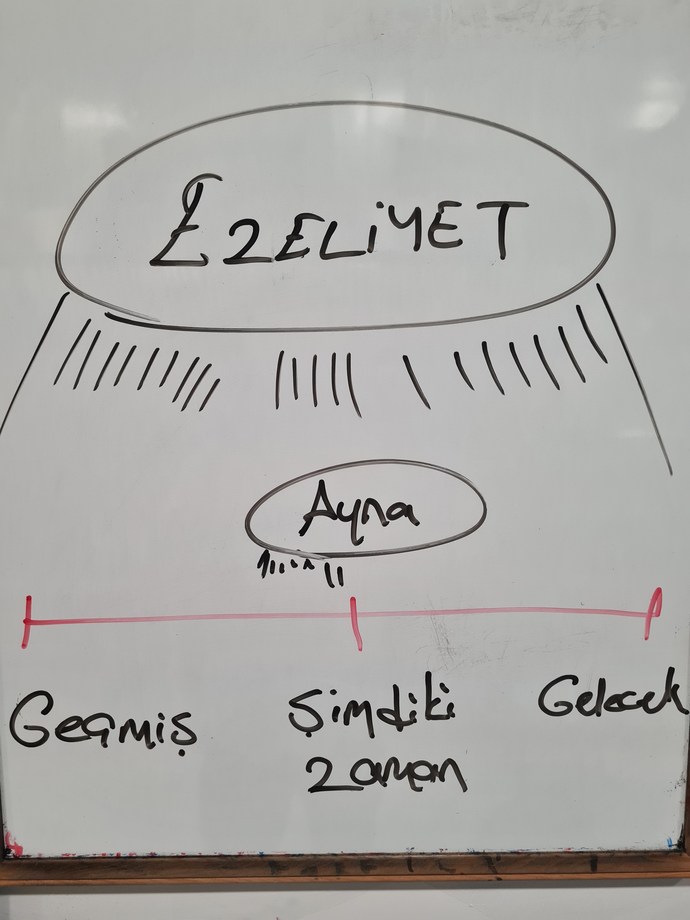 EZELİYET
Ayna
Geçmiş
Şimdiki
Zaman
Gelecek